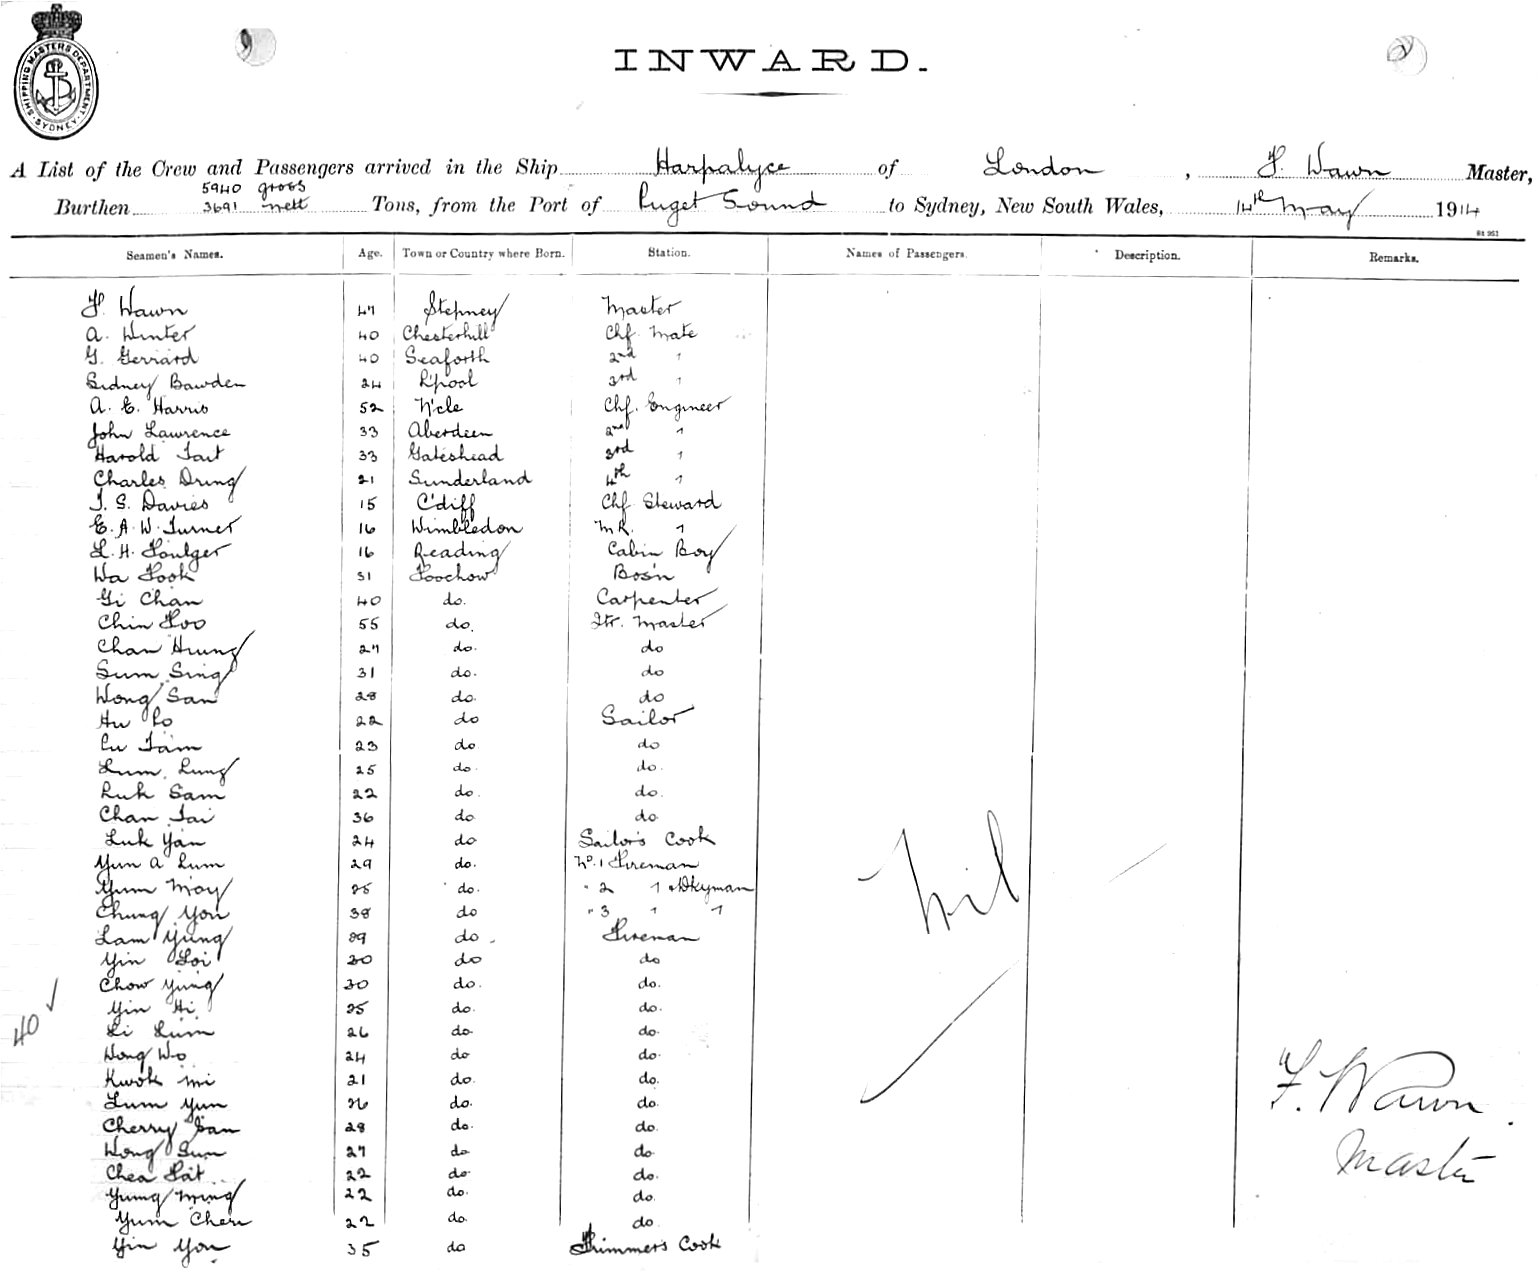 SHIPPING MASTERS DEPARTMENT. SYDNEY.
INWARD.
A List of the Crew and Passengers arrived in the Ship Harpalyce of London, F. Wawn Master,
5940 gross
Burthen 3691 nett Tons, from the Port of Puget Sound to Sydney, New South Wales, 14th May 1914
Seamen's Names. Age. Town or Country where Born. Station. Names of Passengers. Description. Remarks.
F. Wawn 47 Stepney Master
A. Winter 40 Chesterhill Chf. Mate
G. Gerrard 40 Seaforth 2nd "
Sidney Bawden 24 L'pool 3rd "
A. E. Harris 52 N'cle Chf. Engineer
John Lawrence 33 Aberdeen 2nd "
Harold Tait 33 Gateshead 3rd "
Charles Dring 21 Sunderland 4th "
T. S. Davies 15 C'diff Chf Steward
E. A. W. Turner 16 Wimbledon M.R. "
L. H. Foulger 16 Reading Cabin Boy
Wa Fook 31 Foochow Bosn
Gi Chan 40 do. Carpenter
Chin Foo 55 do. Qtr. Master
Chan Hung 27 do. do
Sum Sing 31 do. do
Wong San 28 do. do
Hu Lo 22 do Sailor
Lu Tam 23 do do
Lum Lung 25 do. do.
Luk Sam 22 do. do.
Chan Tai 36 do do
Luk Yan 24 do Sailor's Cook
Yun A Lum 29 do. No. 1 Fireman
Yum Moy 25 do. " 2 " & Dkyman
Chung You 38 do " 3 " "
Lam Yung 29 do. Fireman
Yin Loi 30 do do
Chow Yung 30 do. do.
Yin Hi 25 do. do.
Li Lum 26 do. do.
Wong Wo 24 do do.
Kwok Mi 21 do. do.
Lum Yun 26 do. do.
Cherry San 28 do. do.
Wong Sun 27 do do.
Chea Fat 22 do. do.
Yung Ming 22 do. do.
Yum Cheu 22 do. do.
Yin You 35 do Trimmers Cook
Nil
40
F. Wawn.
Master